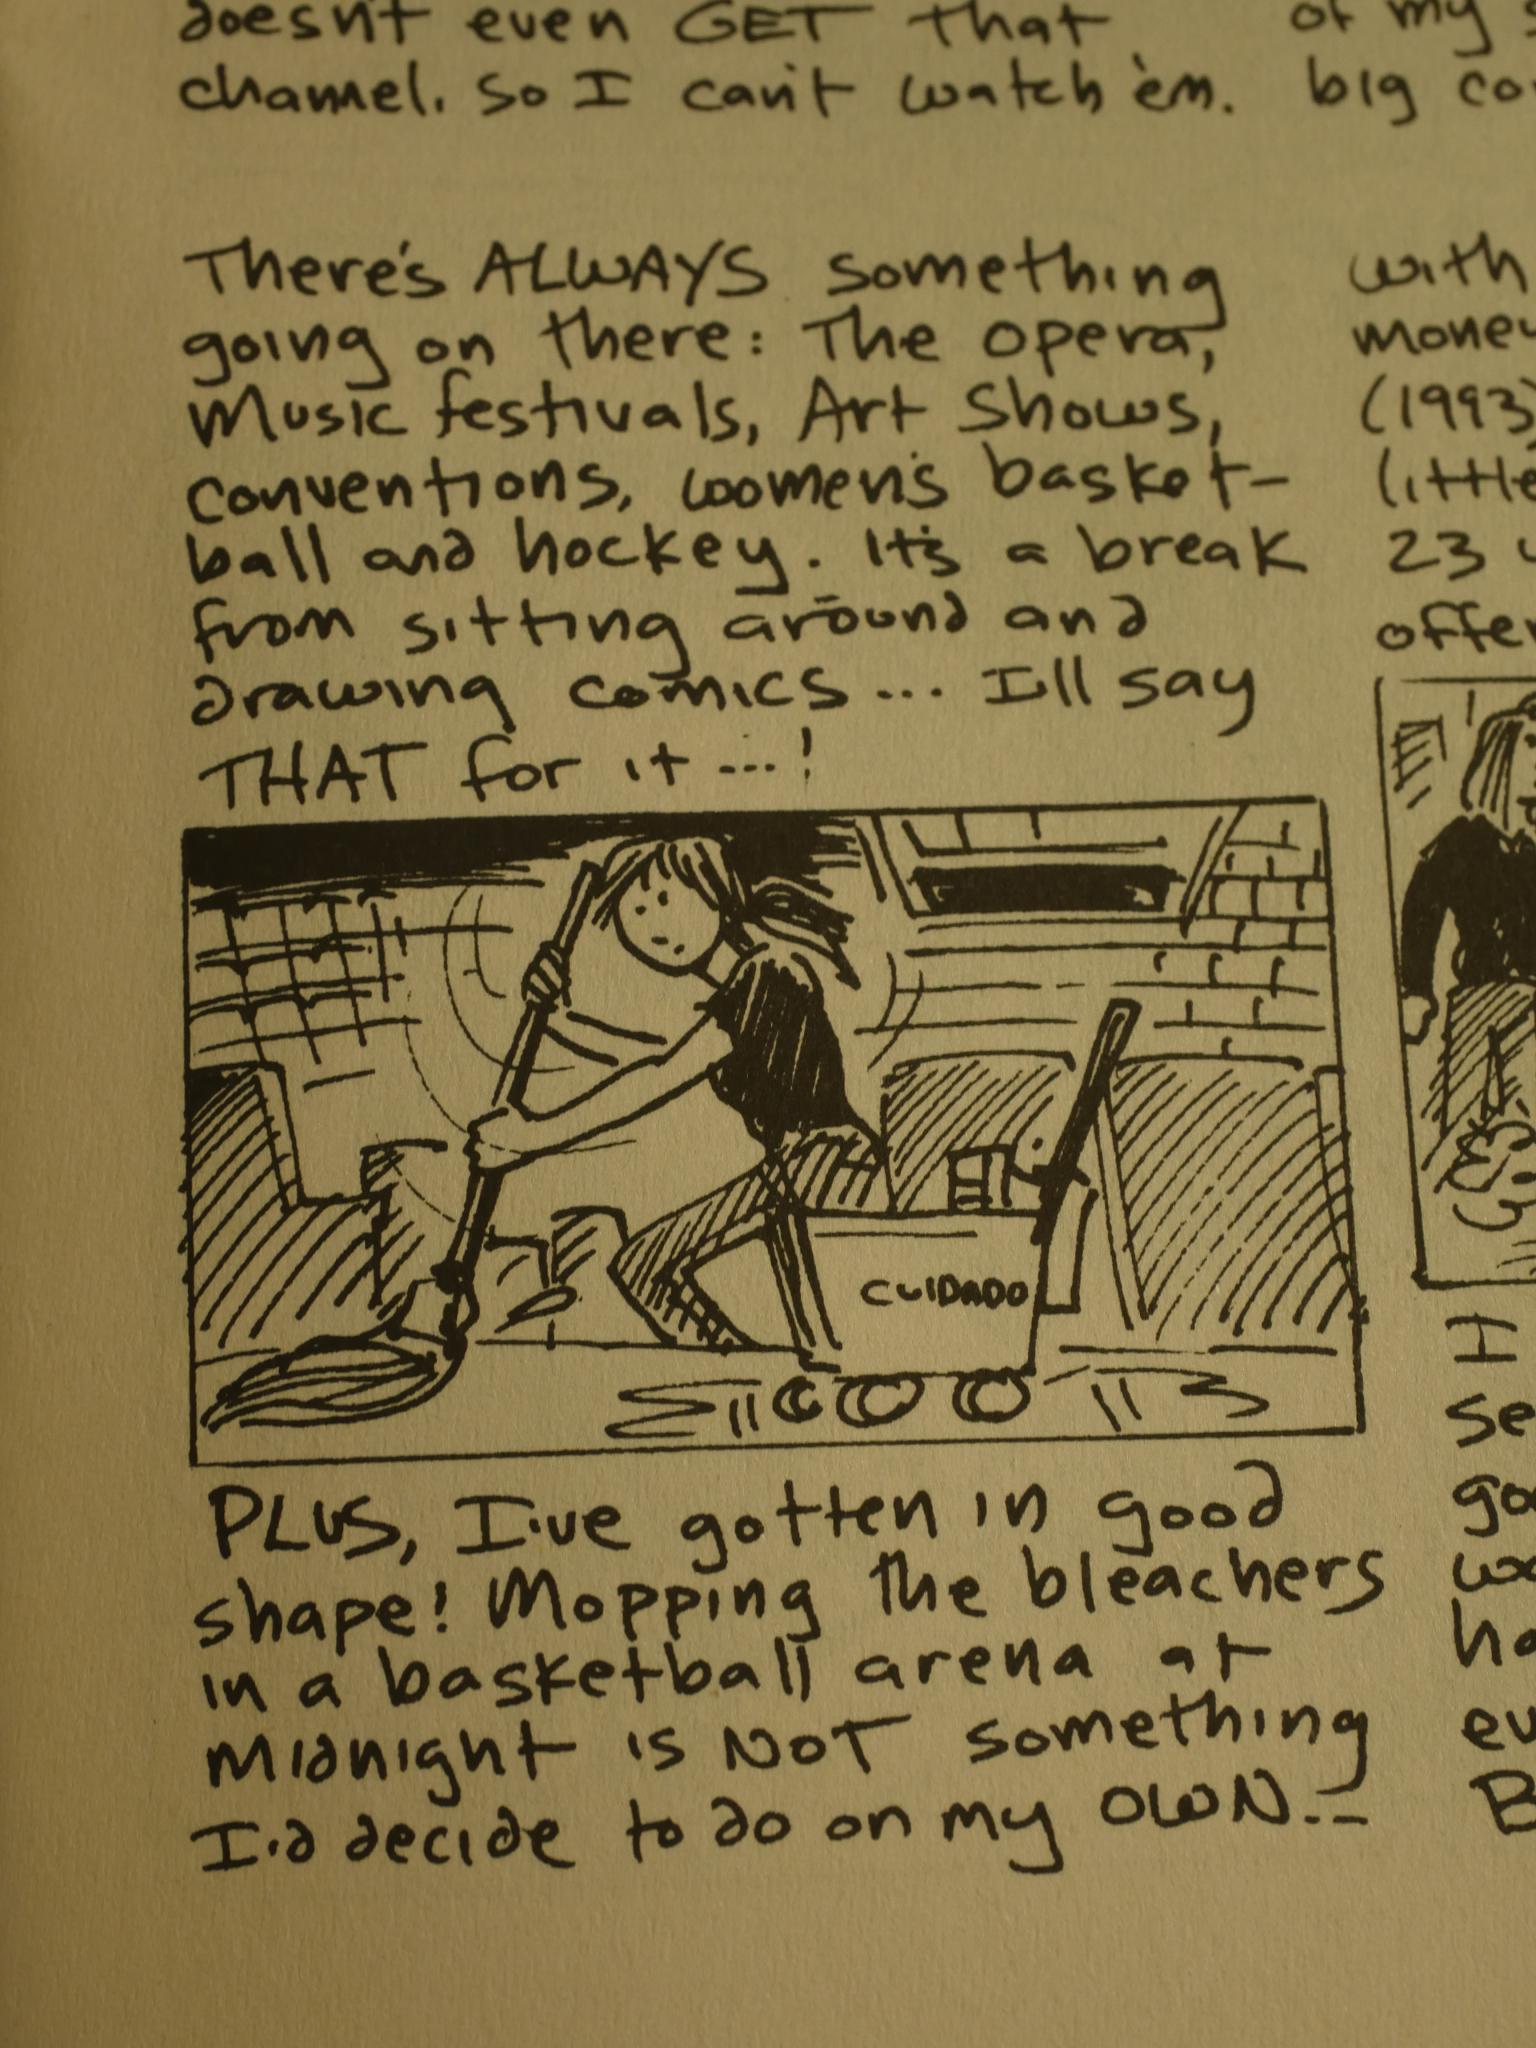 doesn't even GET that
channel. So I can't watch 'em.
There's ALWAYS something
going on there: The opera,
Music festivals, Art Shows,
conventions, women's basket-
ball and hockey. It's a break
from sitting around and
drawing comics... I'll say
THAT for it...!
CUIDADO
PLUS, I've gotten in good
shape! Mopping the bleachers
in a basketball arena at
midnight is NOT something
I'd decide to do on my OWN...
of my
big
with
money
(1993)
(little
23
I